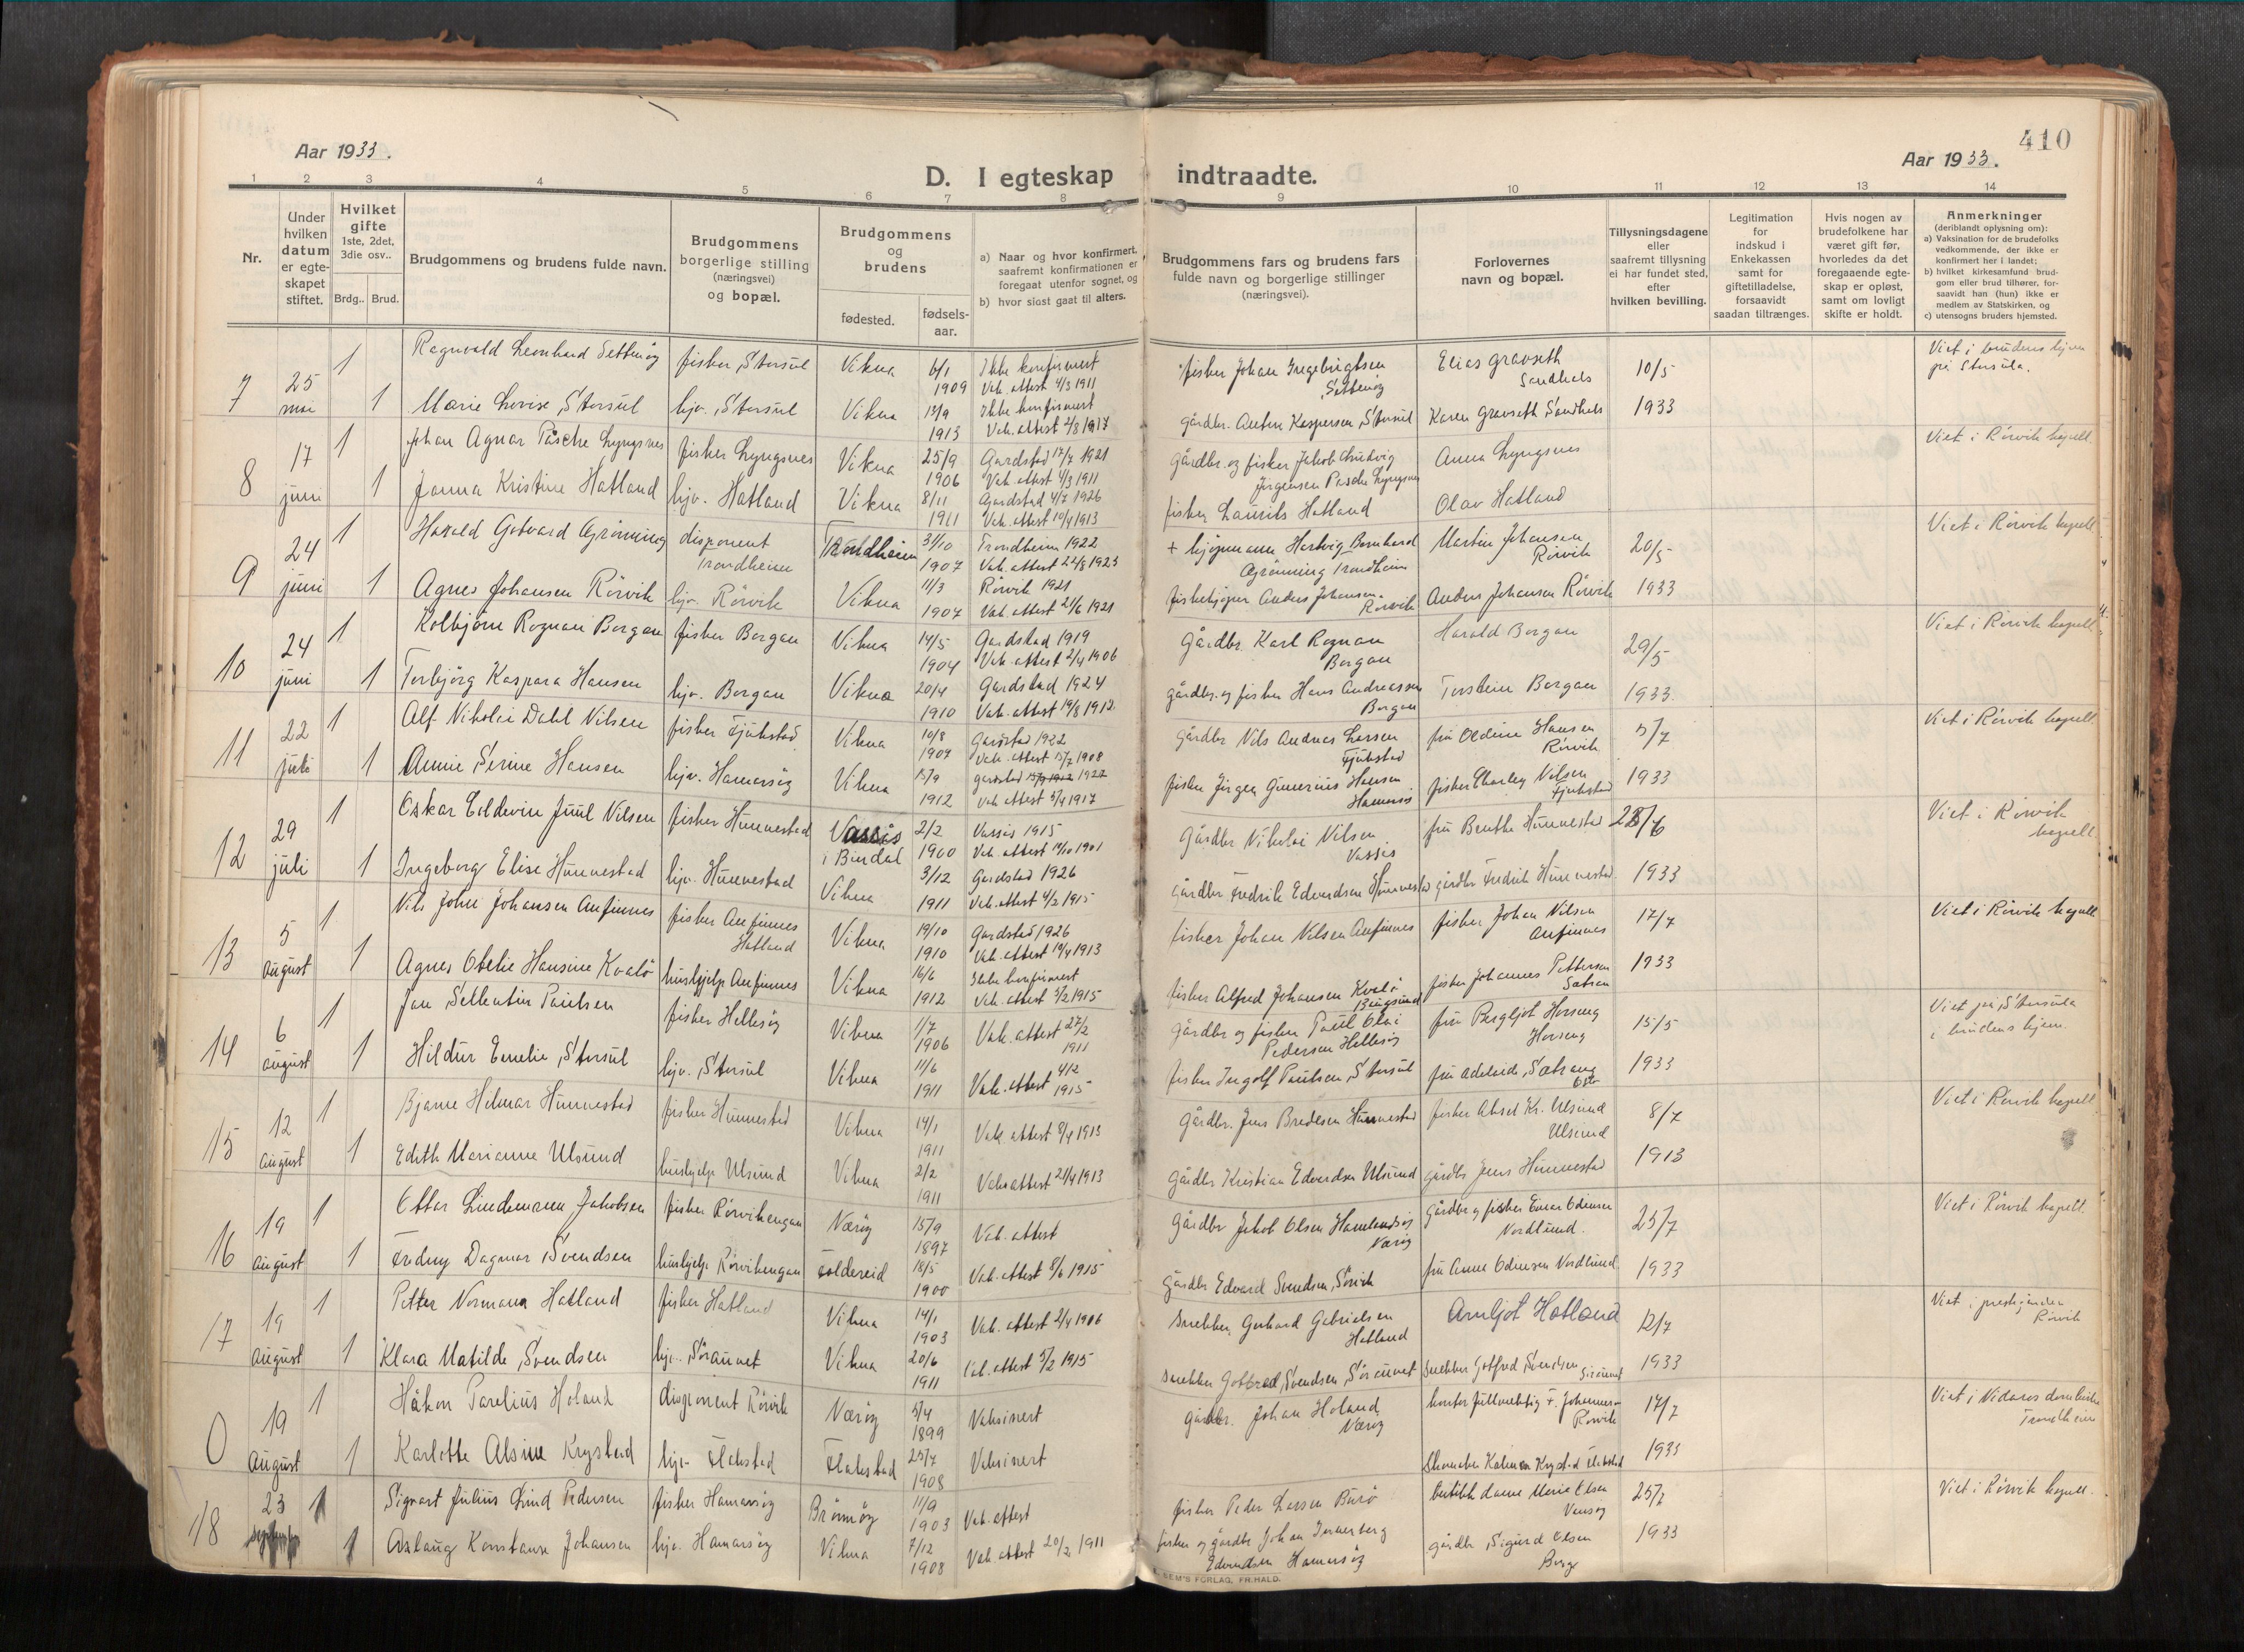 410
Aar 1933.
Aar 1933.
D. I egteskap indtraadte.
1 2 3 4 5 6 7 8 9 10 11 12 13 14
Nr.
Under hvilken datum er egte-skapet stiftet.
Hvilket gifte 1ste, 2det, 3die osv..
Brdg.. Brud.
Brudgommens og brudens fulde navn.
Brudgommens borgerlige stilling (næringsvei) og bopæl.
Brudgommens og brudens
fødested.
fødsels-aar.
a) Naar og hvor konfirmert, saafremt konfirmationen er foregaat utenfor sognet, og
b) hvor sidst gaat til alters.
Brudgommens fars og brudens fars fulde navn og borgerlige stillinger (næringsvei).
Forlovernes navn og bopæl.
Tillysningsdagene eller saafremt tillysning ei har fundet sted, efter hvilken bevilling.
Legitimation for indskud i Enkekassen samt for giftetilladelse, forsaavidt saadan tiltrænges.
Hvis nogen av brudefolkene har været gift før, hvorledes da det foregaaende egte-skap er opløst, samt om lovligt skifte er holdt.
Anmerkninger (deriblandt oplysning om):
a) Vaksination for de brudefolks vedkommende, der ikke er konfirmert her i landet;
b) hvilket kirkesamfund brud-gom eller brud tilhører, for-saavidt han (hun) ikke er medlem av Statskirken, og
c) utensogns bruders hjemsted.
7 25 mai 1 Ragnvald Leonhard Setternøy fisker, Storsul Vikna 6/1 1909 Ikke konfirmert Vak. attest 4/3 1911 fisker Johan Ingebrigtsen Setternøy Elias Gravseth Sandhals 10/5 Viet i brudens hjem på Storsula.
1 Marie Lovise Storsul hjv. Storsul Vikna 13/9 1913 Ikke konfirmert Vak. attest 2/8 1917 gårdbr. Anton Kaspersen, Storsul Karen Gravseth Sandhals 1933
8 17 juni 1 Johan Agnar Påsche Lyngsnes fisker Lyngsnes Vikna 25/9 1906 Gardstad 17/7 1921 Vak. attest 4/3 1911 gårdbr. og fisker Jakob Ludvig Jørgensen Pasche Lyngsnes Anna Lyngsnes Viet i Rörvik kapell
1 Janna Kristine Hatland hjv. Hatland Vikna 8/11 1911 Gardstad 4/7 1926 Vak. attest 10/4 1913 fisker Laurits Hatland Olav Hatland
9 24 juni 1 Harald Gotvard Grönning disponent Trondheim Trondheim 31/10 1907 Trondheim 1922 Vak. attest 22/8 1923 + kjøpmann Hartvig Bernhard Grönning Trondheim Martin Johansen Rörvik 20/5 Viet i Rörvik kapell
1 Agnes Johansen Rörvik hjv. Rörvik Vikna 11/3 1907 Rörvik 1921 Vak. attest 21/6 1921 fiskekjøper Anders Johansen Rörvik Anders Johansen Rörvik 1933
10 24 juni 1 Kolbjörn Rognan Borgan fisker Borgan Vikna 14/5 1904 Gardstad 1919 Vak. attest 2/4 1906 Gårdbr. Karl Rognan Borgan Harald Borgan 29/5 Viet i Rörvik kapell
1 Torbjörg Kaspara Hansen hjv. Borgan Vikna 20/4 1910 Gardstad 1924 Vak. attest 19/8 1912 gårdbr. og fisker Hans Andreassen Borgan Torstein Borgan 1933.
11 22 juli 1 Alf Nikolai Dahl Nilsen fisker Fjukstad Vikna 10/8 1907 Gardstad 1922 Vak. attest 15/7 1908 gårdbr Nils Andreas Larsen Fjukstad fru Oldine Hansen Rörvik 5/7 Viet i Rörvik kapell
1 Annie Serine Hansen hjv. Hamarsøy Vikna 15/9 1912 gardstad 1927 Vak attest 3/4 1917 fisker Jørgen Hansen fisker Charley Nilsen Fjukstad 1933
12 29 juli 1 Oskar Eldevin Juul Nilsen fisker Hunnestad Vassås i Bindal 2/2 1900 Vassås 1915 Vak. attest 14/10 1901 Gårdbr Nikolai Nilsen Vassås fru Benthe Hunnestad 28/6 Viet i Rörvik kapell
1 Ingeborg Elise Hunnestad hjv. Hunnestad Vikna 3/12 1911 Gardstad 1926 Vak. attest 4/2 1915 gårdbr Fredrik Edvardsen Hunnestad gårdbr Fredrik Hunnestad 1933
13 5 August 1 Nils John Johansen Anfinnes fisker Anfinnes Hatland Vikna 19/10 1910 Gardstad 1926 Vak. attest 19/4 1913 fisker Johan Nilsen Anfinnes fisker Johan Nilsen Anfinnes 17/7 Viet i Rörvik kapell
1 Agnes Otelie Hansine Kvalö hushjelp Anfinnes Vikna 16/6 1912 Ikke konfirmert Vak. attest 5/2 1915 fisker Alfred Johansen Kvalö fisker Johannes Pettersen 1933
14 6 August 1 Jan Sellentin Paulsen fisker Hellesøy Vikna 1/7 1906 Vak. attest 27/2 1911 gårdbr og fisker Paul Olai Pedersen Hellesøy fru Bergljot Horseng Horseng 15/5 Viet på Storsula i brudens hjem.
1 Hildur Emelie Storsul hjv. Storsul Vikna 11/6 1911 Vak. attest 4/2 1915 fisker Ingolf Paulsen, Storsul fru Adelaide 1933
15 12 August 1 Bjarne Hilmar Hunnestad fisker Hunnestad Vikna 14/1 1911 Vak attest 8/4 1913 gårdbr. Jens Bredesen Hunnestad fisker Aksel Kr. Ulsund Ulsund 8/7 Viet i Rörvik kapell
1 Edith Marianne Ulsund hushjelp Ulsund Vikna 2/2 1911 Vaksattest 21/4 1913 gårdbr Kristian Edvardsen Ulsund gårdbr Jens Hunnestad 1913
16 19 August 1 Ottar Lindemann Jakobsen fisker Rörvikengan Nærøy 15/9 1897 Vak. attest Gårdbr Jakob Olsen Nærøy gårdbr og fisker Einar Odinsen Nordlund. 25/7 Viet i Rörvik kapell.
1 Frödny Dagmar Svendsen hushjelp Rörvikengan Foldereid 18/5 1900 Vak. attest 8/6 1915 gårdbr Edvard Svendsen, fru Anne Odinsen Nordlund 1933
17 19 August 1 Petter Normann Hatland fisker Hatland Vikna 14/1 1903 Vak. attest 2/4 1906 snekker Gerhard Gabrielsen Hatland Arnljot Hatland 12/7 Viet i prestegården Rörvik
1 Klara Matilde Svendsen hjv. Söraunet Vikna 20/6 1911 Vak. attest 5/2 1915 snekker Gotfred Svendsen, Söraunet snekker Gotfred Svendsen Söraunet 1933
0 19 August 1 Håkon Parelius Holand disponent Rörvik Nærøy 5/4 1899 Vaksinert gårdbr. Johan Holand Nærøy kontorfullmektig F. Johannesen Rörvik 17/7 Viet i Nidaros domkirke Trondheim
1 Karlotte Alsine Krystad hjv. Flakstad Flakstad 25/7 1908 Vaksinert Krystad Flakstad 1933
18 23 september 1 Sigvart Julius Lind Pedersen fisker Hamarsøy Brönnöy 11/9 1903 Vak. attest fisker Peder Larsen Burö Marie Olsen 25/7 Viet i Rörvik kapell.
1 Aslaug Konstanse Johansen hjv. Hamarsøy Vikna 7/12 1908 Vak. attest 20/2 1911 fisker og gårdbr Johan Edvardsen Hamarsøy gårdbr Sigurd Olsen Borge 1933
SEM'S FORLAG, FR.HALD.